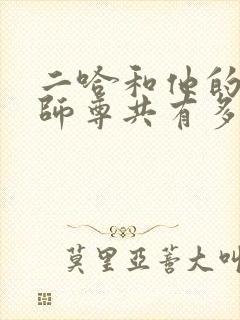 二哈和他的
師尊共有多
莫里亞蒼大叫